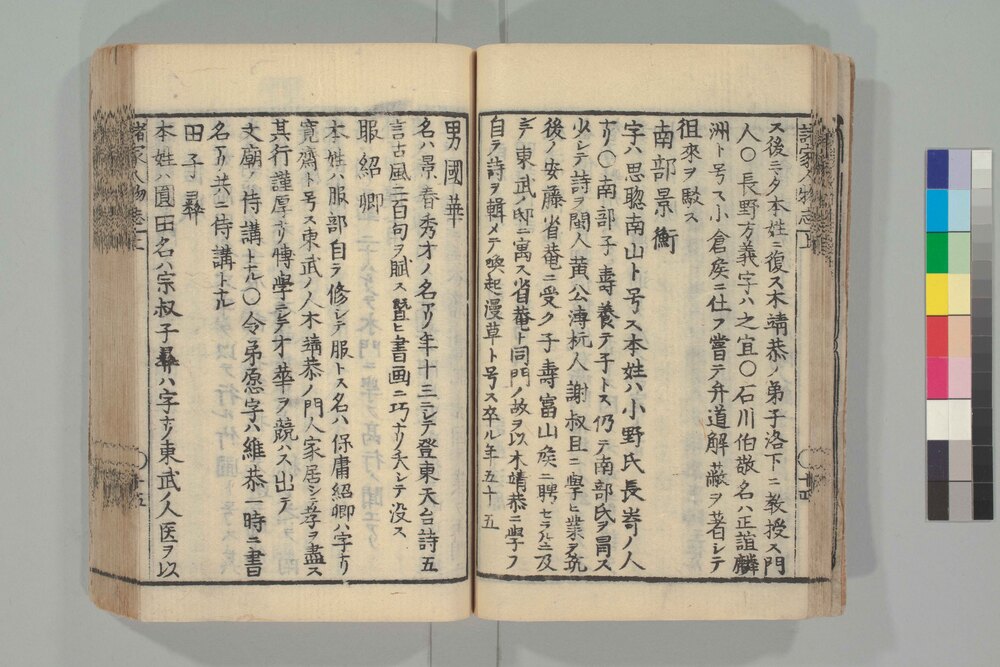 諸家人物志上
ス後ニタ本姓ニ復ス木靖恭ノ弟子洛下ニ教授ス門
人〇長野方義字ハ之宜〇石川伯敬名ハ正誼麟
洲ト号ス小倉矦ニ仕フ嘗テ弁道解蔽ヲ著シテ
徂來ヲ駁ス
南部景衡
字ハ思聡南山ト号ス本姓ハ小野氏長崎ノ人
ナリ〇南部子壽養テ子トス仍テ南部氏ヲ冐ス
少シテ詩ヲ閩人黃公溥杭人謝叔且ニ學ヒ業ヲ筑
後ノ安藤省菴ニ受ク子壽富山矦ニ聘セラルニ及
テ東武ノ邸ニ寓ス省菴ト同門ノ故ヲ以木靖恭ニ學フ
自ラ詩ヲ輯メテ喚起漫草ト号ス卒ル年五十五
十四
男國華
名ハ景春秀才ノ名アリ年十三ニシテ登東天台詩五
言古風二百句ヲ賦ス曁ヒ書画ニ巧ナリ夭シテ没ス
服紹卿
本姓ハ服部自ラ修シテ服トス名ハ保庸紹卿ハ字ナリ
寛齋ト号ス東武ノ人木靖恭ノ門人家居シテ孝ヲ盡ス
其行謹厚ナリ博學ニシテ才華ヲ競ハス出テ
文廟ノ侍講トナル〇令弟愿字ハ維恭一時ニ書
名アリ共ニ侍講トナル
田子彝
本姓ハ園田名ハ宗叔子彝ハ字ナリ東武ノ人医ヲ以
諸家人物志上
十五